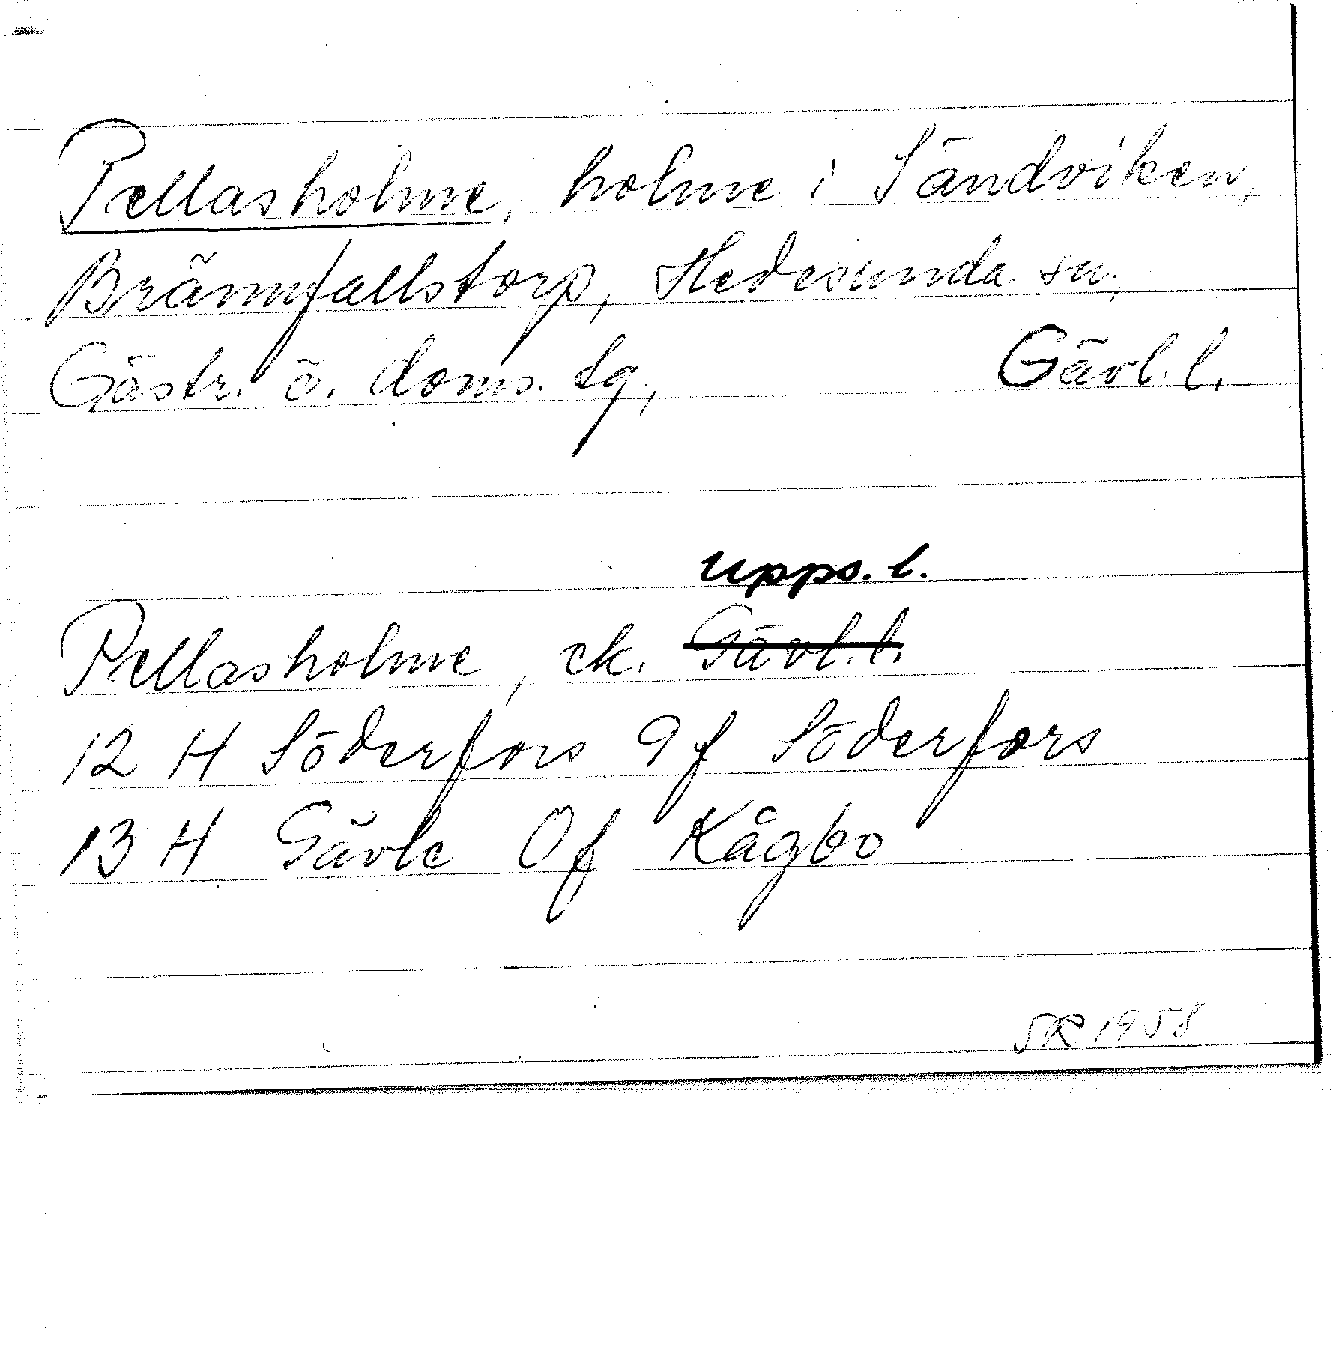 Pellasholme, holme i Sändviken,
Brännfallstorp, Hedesunda sn,
Gästr. ö. doms. tg, Gävl. l.
Upps. l.
Pellasholme, ek. Gävl. l.
12 H Söderfors 9f Söderfors
13 H Gävle 0f Kågbo
SR 1958